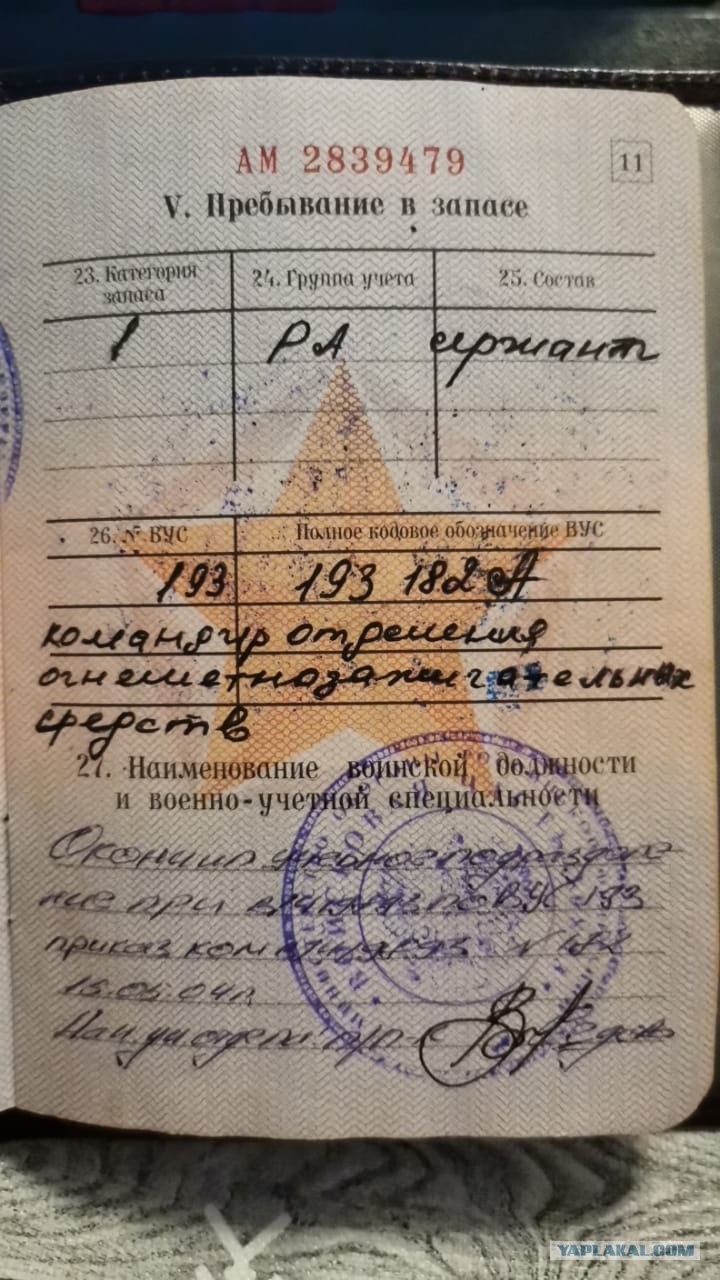 АМ 2839479
11
V. Пребывание в запасе
23. Категория запаса
24. Группа учета
25. Состав
1 РА сержант
26. № ВУС
Полное кодовое обозначение ВУС
193 193 182 А
командир отделения
огнеметнозажигательных
средств
27. Наименование воинской должности
и военно-учетной специальности
Окончил учебное подразделе
ние при ВУС 193
приказ ком N 182
15.05.04г.
Нач.
YAPLAKAL.COM